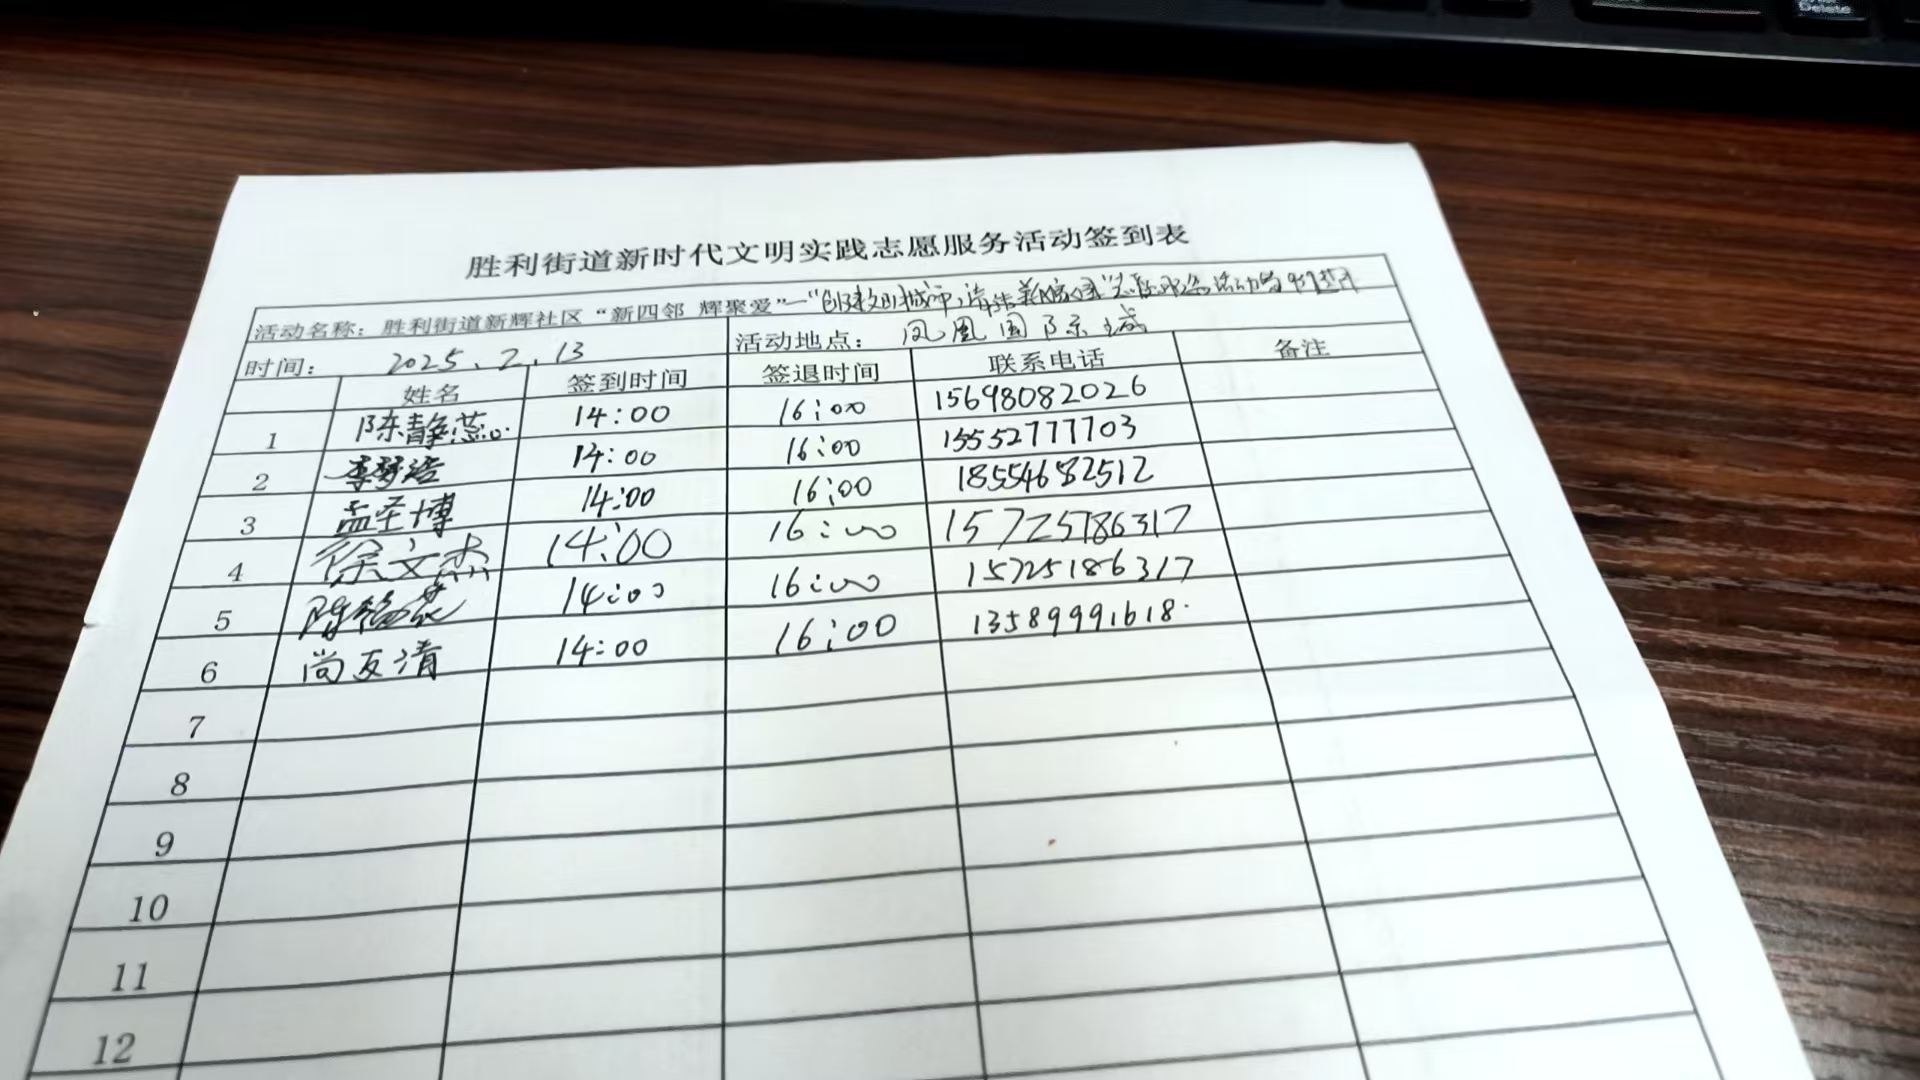 Delete
胜利街道新时代文明实践志愿服务活动签到表
活动名称：胜利街道新辉社区“新四邻 辉聚爱”—“创建文明城市，清洁美丽家园”志愿服务活动
时间： 2025.2.13 活动地点： 凤凰国际城
姓名 签到时间 签退时间 联系电话 备注
1 陈静蕊 14:00 16:00 15698082026
2 李梦洁 14:00 16:00 15552777703
3 孟圣博 14:00 16:00 18554682512
4 徐文杰 14:00 16:00 15725186317
5 14:00 16:00 15725186317
6 尚友清 14:00 16:00 13589991618
7
8
9
10
11
12